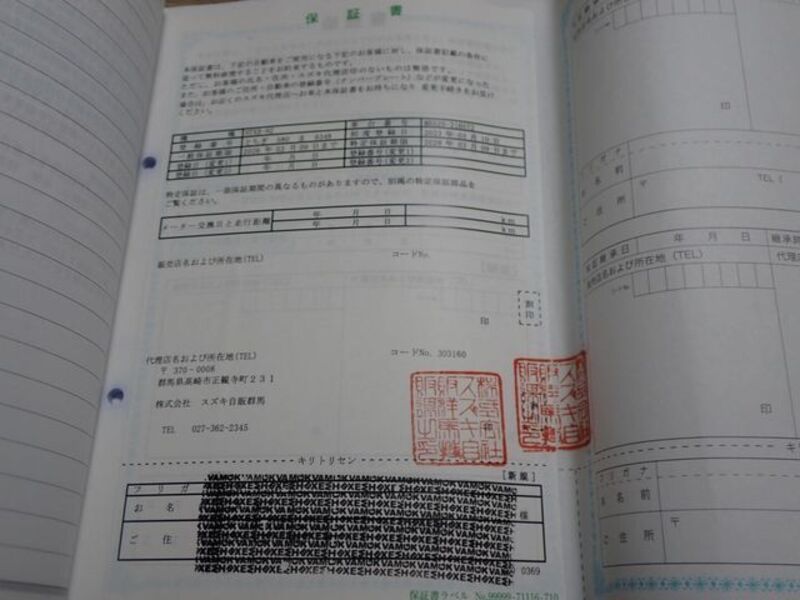 保証書
本保証書は、下記の自動車をご使用になる下記のお客様に対し、保証書記載の条件に
従って無料修理することをお約束するものです。
ただし、お客様の氏名・住所・スズキ代理店印のないものは無効です。
また、お客様のご住所・自動車の登録番号(ナンバープレート)などが変更になった
場合は、お近くのスズキ代理店へお車と本保証書をお持ちになり 変更手続きをお受け
ください。
車台番号
登録番号
初度登録日
一般保証期間
特定保証期間
登録日(変更1) 年 月 日 登録番号(変更1)
登録日(変更2) 年 月 日 登録番号(変更2)
特定保証は、一部保証期間の異なるものがありますので、別掲の特定保証部品を
ご覧ください。
メーター交換日と走行距離 年 月 日 km
年 月 日 km
販売店名および所在地(TEL) コードNo.
印
割印
代理店名および所在地(TEL) コードNo. 303160
〒 370-0008
群馬県高崎市正観寺町231
株式会社 スズキ自販群馬
TEL 027-362-2345
キリトリセン
[新規]
フリガ
お 名
様
ご 住
0369
保証書ラベル No.99999-71156-710
印
フリガナ
お名前
TEL(
ご住所 〒
保証継承日 年 月 日 継承時
販売店名および所在地(TEL) 代理
コードNo.
印
キ
フリガナ
お名前
ご住所 〒